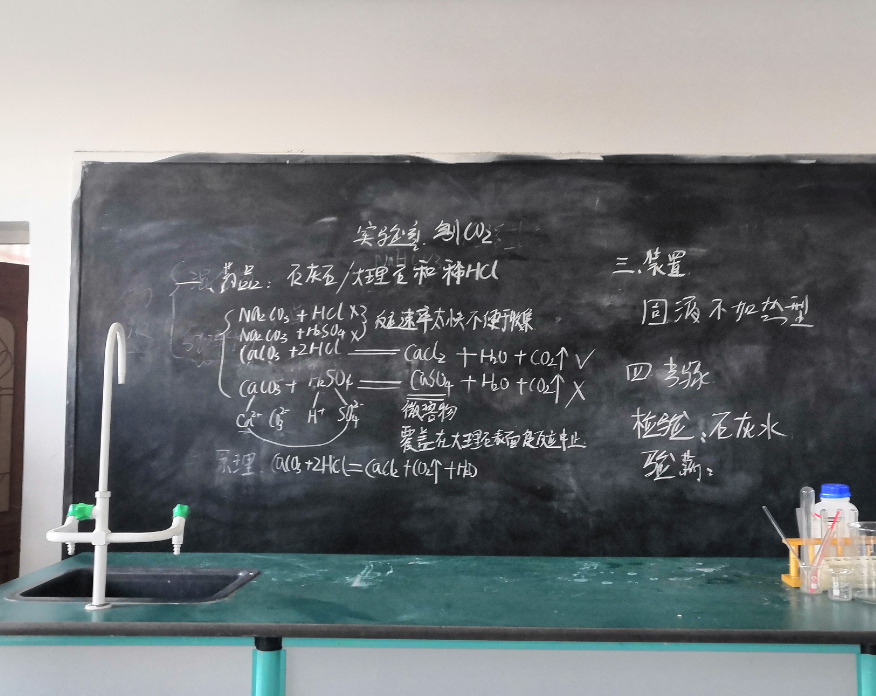 实验室制CO₂
一、药品：石灰石/大理石和稀HCl
Na₂CO₃+HCl ×
Na₂CO₃+H₂SO₄ ×
反应速率太快不便于收集
CaCO₃+2HCl══CaCl₂+H₂O+CO₂↑ √
CaCO₃+H₂SO₄══CaSO₄+H₂O+CO₂↑ ×
Ca²⁺ CO₃²⁻ H⁺ SO₄²⁻
微溶物
覆盖在大理石表面使反应中止
原理 CaCO₃+2HCl=CaCl₂+CO₂↑+H₂O
三、装置
固液不加热型
四
检验：石灰水
验满：